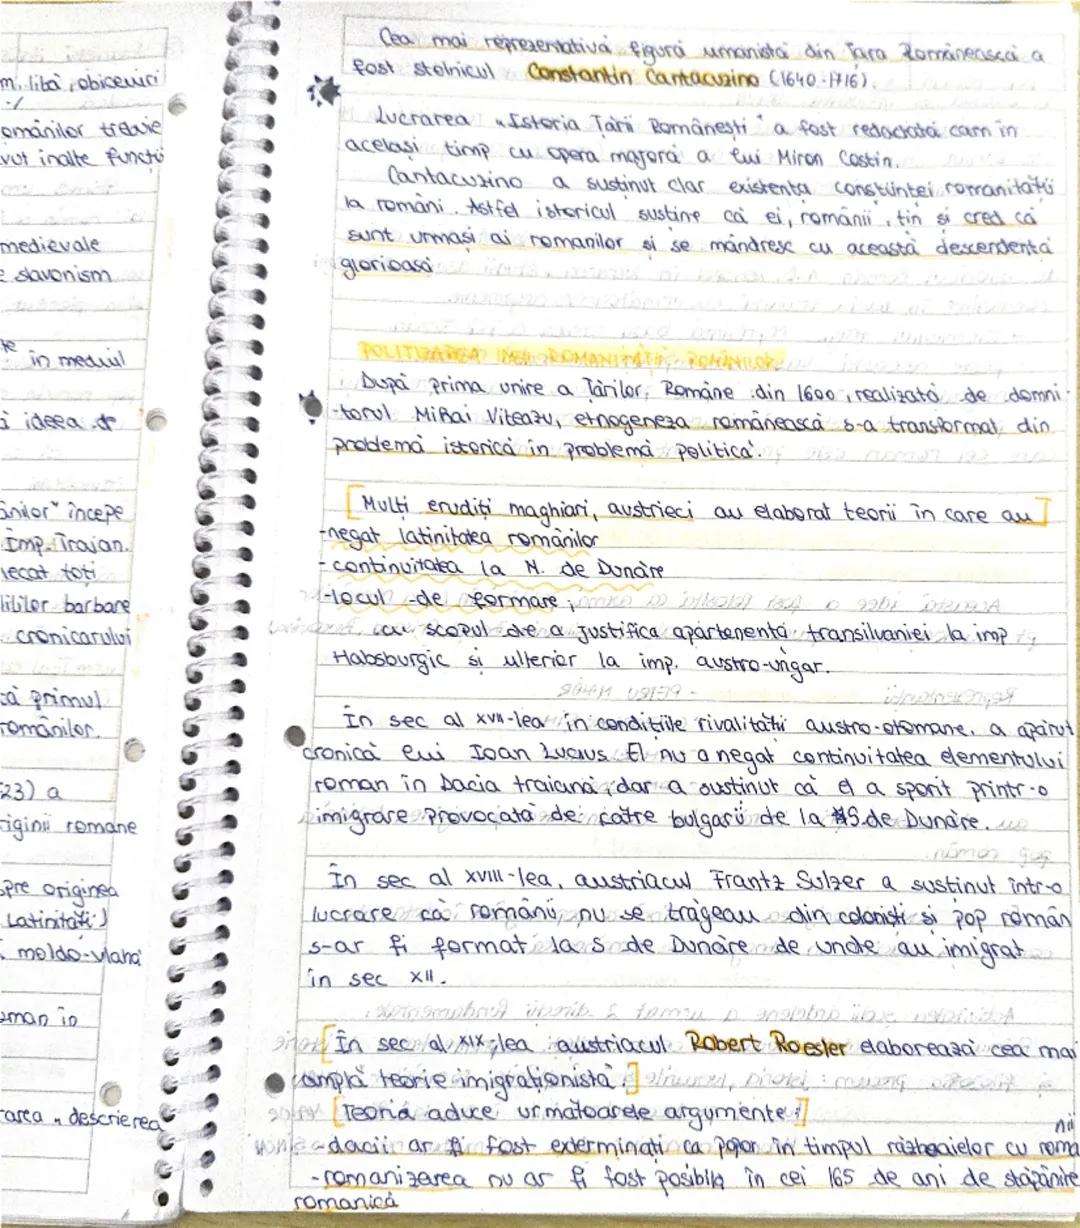 m, libă, obiceiuri
omânilor trebuie
vut înalte funcții
medievale
e slavonism
te în mediul
ă ideea de
ânilor" începe
Imp. Traian.
lecat toți
lililor barbare
cronicarului
că primul
românilor.
23) a
riginii romane
spre originea
Latinități)
moldo-vlahă
oman în
carea „descrierea
Cea mai reprezentativă figură umanistă din Țara Românească a
fost stolnicul Constantin Cantacuzino (1640-1716).
Lucrarea „Istoria Țării Românești" a fost redactată cam în
același timp cu opera majoră a lui Miron Costin.
Cantacuzino a susținut clar existența conștiinței romanității
la români. Astfel istoricul susține că ei, românii, țin și cred că
sunt urmași ai romanilor și se mândresc cu această descendență
glorioasă
POLITIZAREA IDEII ROMANITĂȚII ROMÂNILOR
După prima unire a Țărilor Române din 1600, realizată de domni-
-torul Mihai Viteazu, etnogeneza românească s-a transformat din
problemă istorică în problemă politică.
[Mulți erudiți maghiari, austrieci au elaborat teorii în care au]
-negat latinitatea românilor
-continuitatea la N. de Dunăre
-locul de formare,
cu scopul de a justifica apartenența transilvaniei la imp
Habsburgic și ulterior la imp. austro-ungar.
În sec al XVII-lea în condițiile rivalității austro-otomane, a apărut
cronica lui Ioan Lucius. El nu a negat continuitatea elementului
roman în Dacia traiană, dar a susținut că el a sporit printr-o
imigrare provocată de către bulgarii de la S. de Dunăre.
În sec al XVIII-lea, austriacul Frantz Sulzer a susținut într-o
lucrare că românii nu se trăgeau din coloniști și pop român
s-ar fi format la S de Dunăre de unde au imigrat
în sec XII.
[În sec al XIX-lea austriacul Robert Roesler elaborează cea mai
amplă teorie imigraționistă]
[Teoria aduce următoarele argumente:]
-dacii ar fi fost exterminați ca popor în timpul războaielor cu roma
nii
-romanizarea nu ar fi fost posibilă în cei 165 de ani de stăpânire
romanică